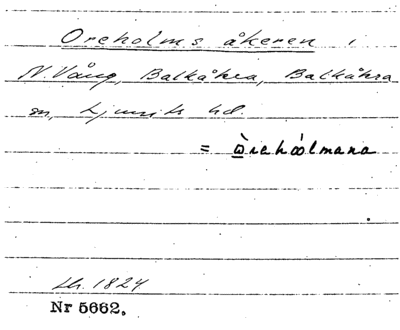 Oreholms åkeren,
N. Vång, Balkåkra, Balkåkra
sn, Ljunits hd.
= Òrehóolmana
Lh. 1824
Nr 5662.